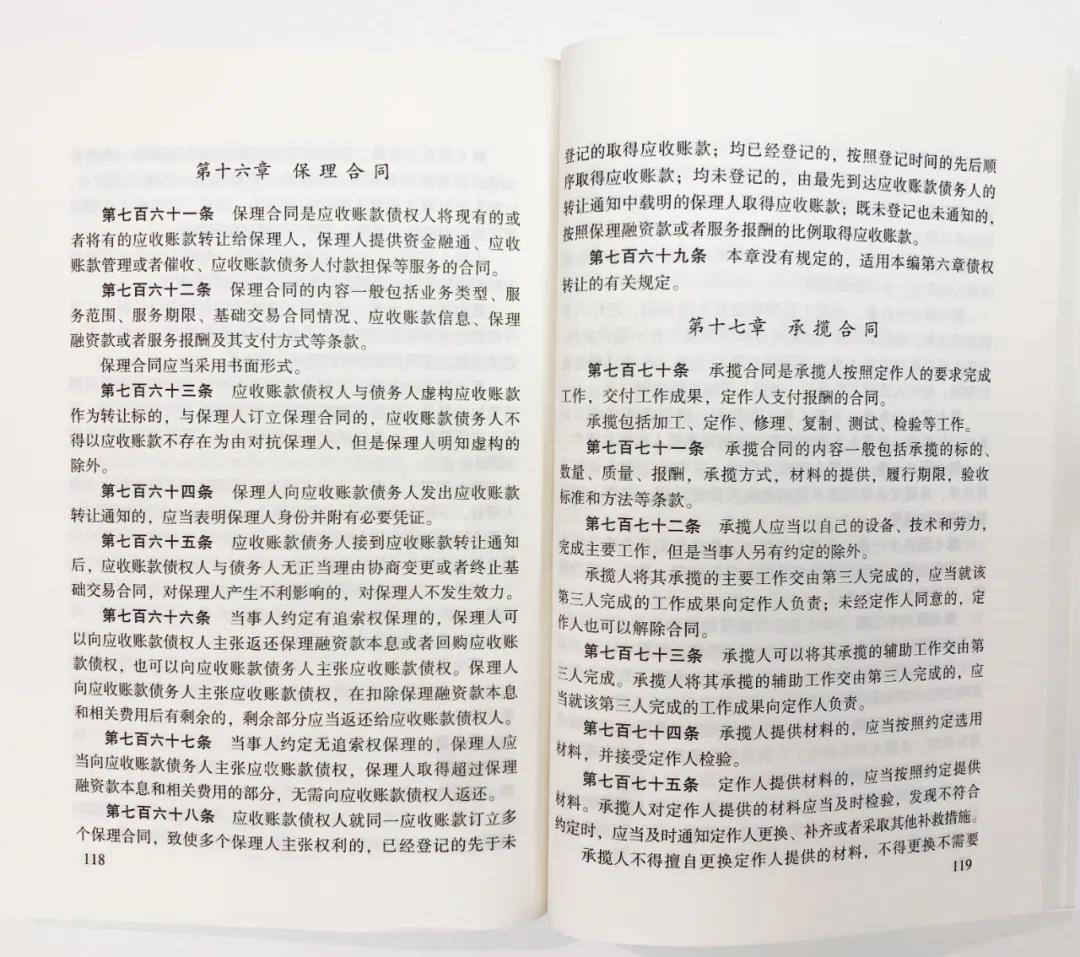 第十六章 保理合同
第七百六十一条 保理合同是应收账款债权人将现有的或
者将有的应收账款转让给保理人，保理人提供资金融通、应收
账款管理或者催收、应收账款债务人付款担保等服务的合同。
第七百六十二条 保理合同的内容一般包括业务类型、服
务范围、服务期限、基础交易合同情况、应收账款信息、保理
融资款或者服务报酬及其支付方式等条款。
保理合同应当采用书面形式。
第七百六十三条 应收账款债权人与债务人虚构应收账款
作为转让标的，与保理人订立保理合同的，应收账款债务人不
得以应收账款不存在为由对抗保理人，但是保理人明知虚构的
除外。
第七百六十四条 保理人向应收账款债务人发出应收账款
转让通知的，应当表明保理人身份并附有必要凭证。
第七百六十五条 应收账款债务人接到应收账款转让通知
后，应收账款债权人与债务人无正当理由协商变更或者终止基
础交易合同，对保理人产生不利影响的，对保理人不发生效力。
第七百六十六条 当事人约定有追索权保理的，保理人可
以向应收账款债权人主张返还保理融资款本息或者回购应收账
款债权，也可以向应收账款债务人主张应收账款债权。保理人
向应收账款债务人主张应收账款债权，在扣除保理融资款本息
和相关费用后有剩余的，剩余部分应当返还给应收账款债权人。
第七百六十七条 当事人约定无追索权保理的，保理人应
当向应收账款债务人主张应收账款债权，保理人取得超过保理
融资款本息和相关费用的部分，无需向应收账款债权人返还。
第七百六十八条 应收账款债权人就同一应收账款订立多
个保理合同，致使多个保理人主张权利的，已经登记的先于未
118
登记的取得应收账款；均已经登记的，按照登记时间的先后顺
序取得应收账款；均未登记的，由最先到达应收账款债务人的
转让通知中载明的保理人取得应收账款；既未登记也未通知的，
按照保理融资款或者服务报酬的比例取得应收账款。
第七百六十九条 本章没有规定的，适用本编第六章债权
转让的有关规定。
第十七章 承揽合同
第七百七十条 承揽合同是承揽人按照定作人的要求完成
工作，交付工作成果，定作人支付报酬的合同。
承揽包括加工、定作、修理、复制、测试、检验等工作。
第七百七十一条 承揽合同的内容一般包括承揽的标的、
数量、质量、报酬，承揽方式，材料的提供，履行期限，验收
标准和方法等条款。
第七百七十二条 承揽人应当以自己的设备、技术和劳力，
完成主要工作，但是当事人另有约定的除外。
承揽人将其承揽的主要工作交由第三人完成的，应当就该
第三人完成的工作成果向定作人负责；未经定作人同意的，定
作人也可以解除合同。
第七百七十三条 承揽人可以将其承揽的辅助工作交由第
三人完成。承揽人将其承揽的辅助工作交由第三人完成的，应
当就该第三人完成的工作成果向定作人负责。
第七百七十四条 承揽人提供材料的，应当按照约定选用
材料，并接受定作人检验。
第七百七十五条 定作人提供材料的，应当按照约定提供
材料。承揽人对定作人提供的材料应当及时检验，发现不符合
约定时，应当及时通知定作人更换、补齐或者采取其他补救措施。
承揽人不得擅自更换定作人提供的材料，不得更换不需要
119